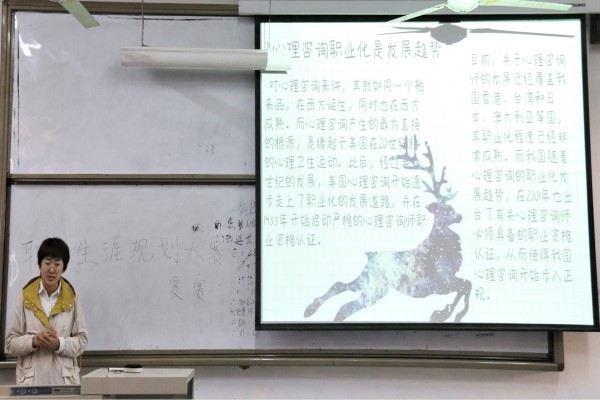 心理咨询职业化是发展趋势
对心理咨询来讲,其就如同一个舶
来品,在西方诞生,同时也在西方
成熟。而心理咨询产生的最为直接
的根源,是缘起于美国在20世纪
的心理卫生运动。此后,经过
世纪的发展,美国心理咨询开始逐
步走上了职业化的发展道路,并在
1955年开始启动严格的心理咨询师职
业资格认证。
目前,关于心理咨询
师的发展已经覆盖我
国香港、台湾和日
本、澳大利亚等国,
其职业化程度已经非
常成熟。而我国随着
心理咨询的职业化发
展趋势,在2001年也出
台了有关心理咨询师
必须具备的职业资格
认证,从而使得我国
心理咨询开始步入正
规。
职 生涯规划大赛
复赛